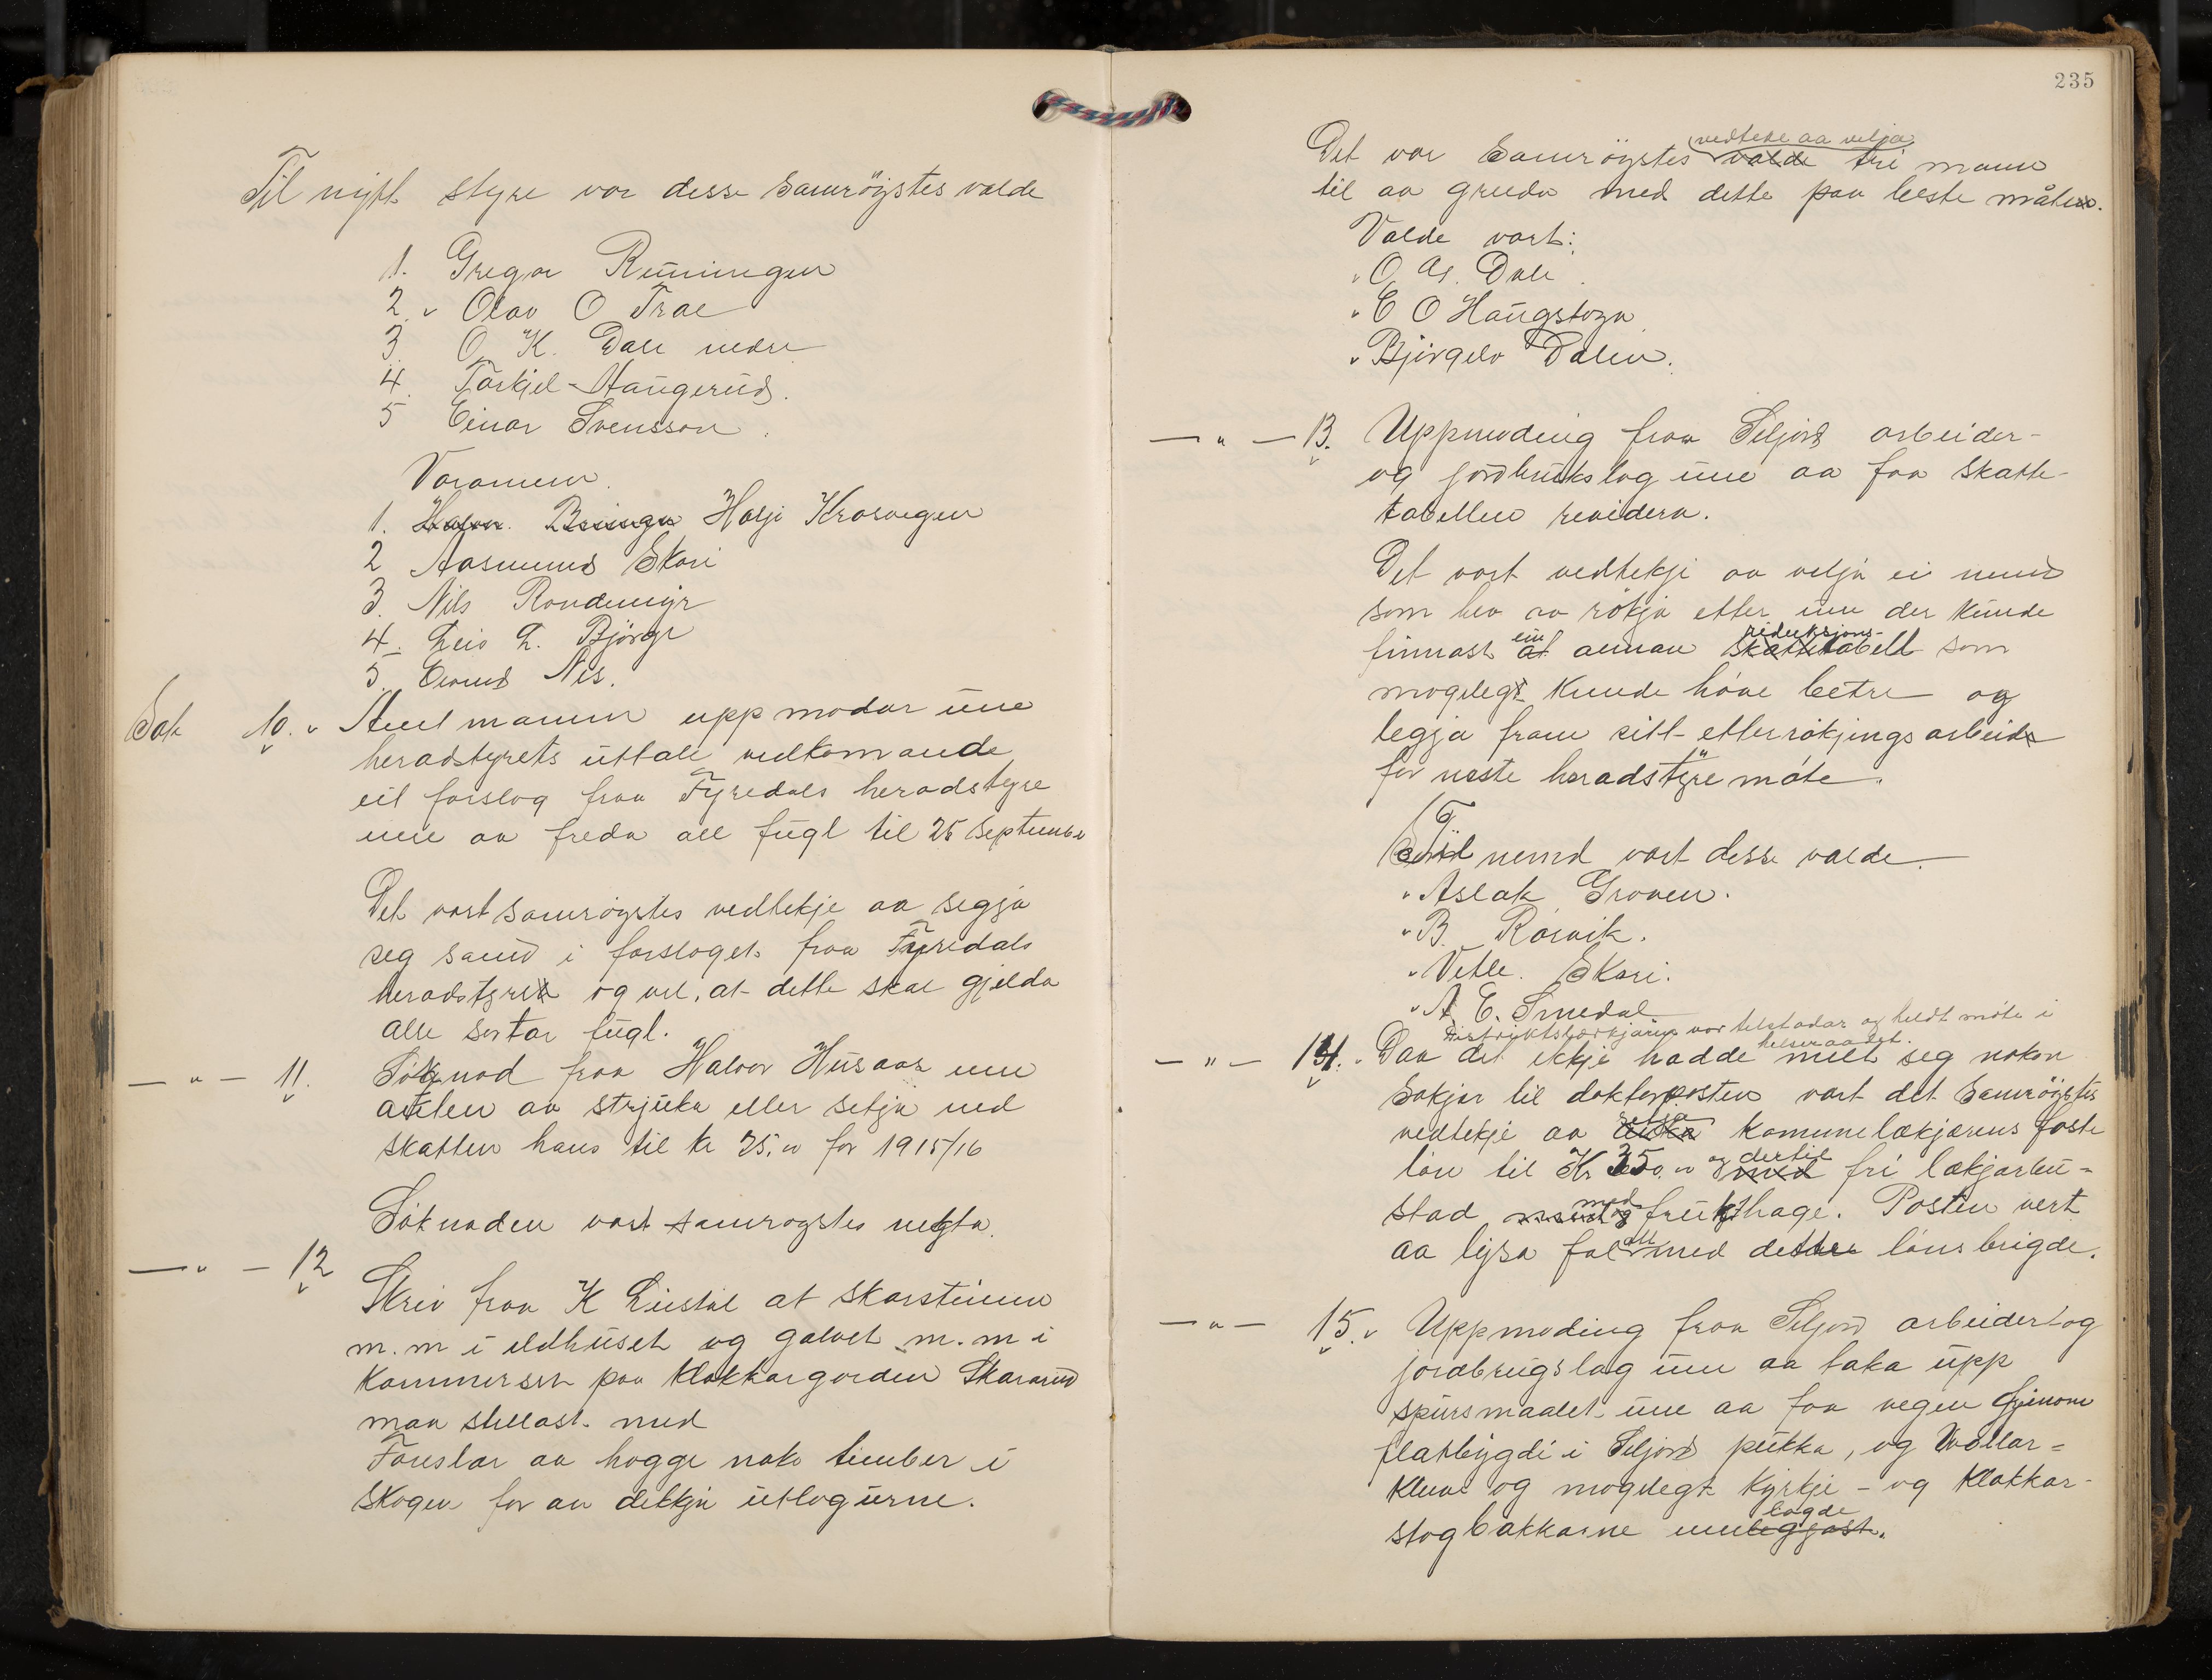 Til nytt styre var desse samröystes valde
1. Gregar Rŭningen
2. " Olav O Trae
3. O. K. Dale nedre
4. Torkjel Haŭgerŭd.
5 Einar Svensson.
Varamenn.
1. Halvor. Bringa Hasji Krosvegen
2 Aasmund Skori
3. Nils Rondemyr
4. Leiv L. Bjørge
5. Eivind Nes.
Sak 10. " Amtmannen uppmodar ŭm
heradstyrets ŭttale vedkomande
eit forslag fraa Fyresdals heradstyre
um aa freda all fŭgl til 25 September
Det vart samröystes vedtekje aa segja
seg samd i forslaget fraa Fyresdals
heradstyre og vil, at dette skal gjelda
alle sortar fŭgl.
— " — 11. Søknad fraa Halvor Hŭsaas um
anten aa strjŭka eller setja ned
skatten hans til kr 25,00 for 1915/16
Søknaden vart samrøystes negta.
— " — 12
Skriv fraa K Liestøl at skorsteinen
m. m i eldhŭset og golvet m. m i
Kammerset paa Klokkargarden Skararŭd
maa stellast. med
Føreslær aa hogge noko timber i
skogen for aa dekkja ŭtlogŭrne.
235
Det var samröystes valde vedteke aa velja tri mann
til aa greida med dette paa beste måten.
Valde vart:
" O. As. Dale.
" E O Haŭgstoga
" Bjørgulv Dalen.
— " — 13. Uppmoding fraa Seljord arbeidar-
og jordbrŭkslag ŭm aa faa skatte-
tabellen revidera.
Det vart vedtekje aa velja ei nemd
som hev aa røkja etter ŭm der kŭnde
finnast ein at annan skatte reduksjons-tabell som
mogelegt kunde høve betre og
leggja fram sitt etterrøkjings arbeide
for neste heradstyremøte.
Til nemd vart desse valde.
" Aslak Groven.
" B. Rørvik.
" Vetle. Skori.
" A. E. Smedal.
Distriktslækjaren var tilstadar og heldt møte i
helseraadet.
— " — 14. " Daa det ikkje hadde meldt seg nokon
søkjar til doktorposten vart det samröystes
vedtekje aa auka setja komunelækjarens faste
løn til Kr 350.00 og dertil med fri lækjarbu-
stad med frŭkthage. Posten vert
aa lysa full all med dette løns brigde.
— " — 15. " Uppmoding fraa Seljord arbeidar og
jordbrŭgslag ŭm aa taka ŭpp
spŭrsmaalet ŭm aa faa vegen gjenom
flatbygdi i Seljord pŭkka, og Vollar-
kleiva og mogelegt kyrkje- og klokkar-
stogbakkarne umleggjast. lagde